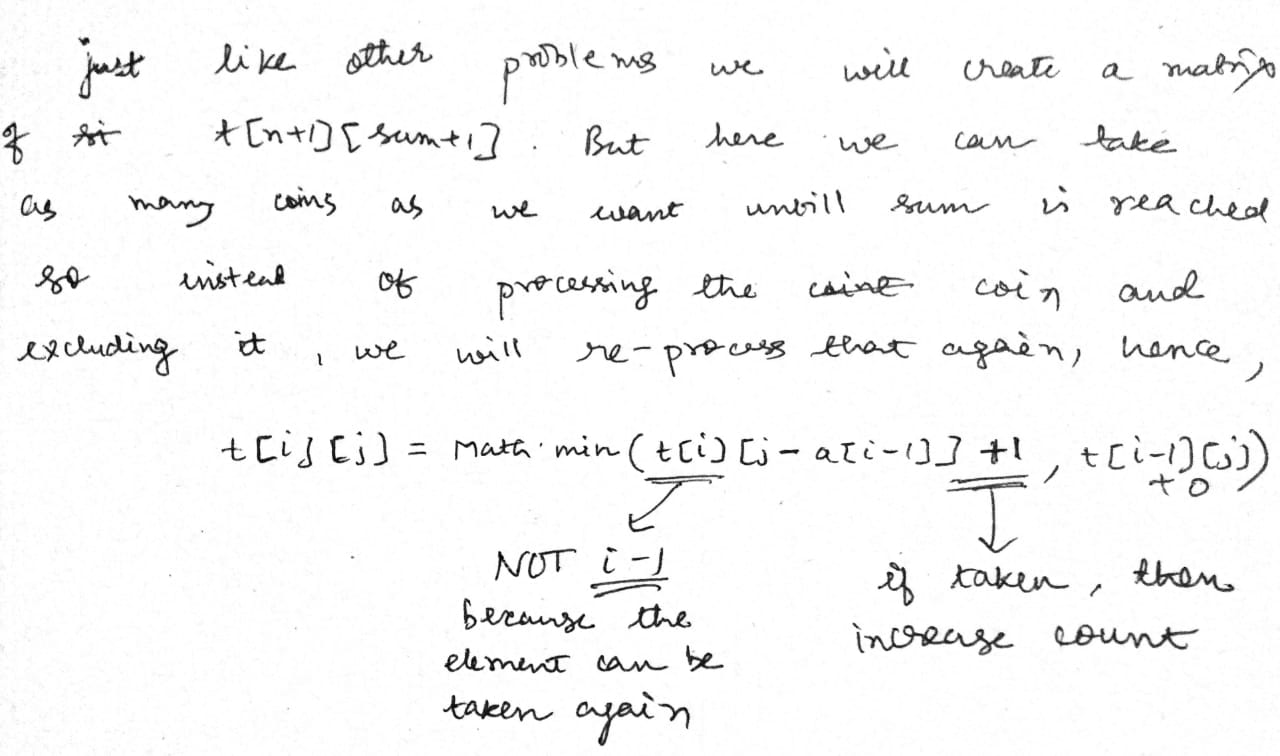 just like other problems we will create a matrix
of si t[n+1][sum+1]. But here we can take
as many coins as we want untill sum is reached
so instead of processing the coint coin and
excluding it, we will re-process that again, hence,
t[i][j] = Math.min(t[i][j-a[i-1]]+1, t[i-1][j])
+0
NOT i-1
because the
element can be
taken again
if taken, then
increase count